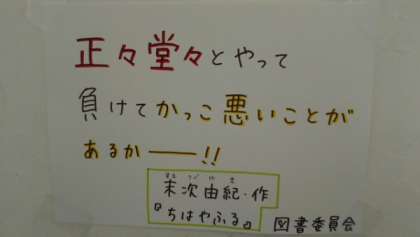 正々堂々とやって
負けてかっこ悪いことが
あるかー!!
末次由紀・作
『ちはやふる』
図書委員会